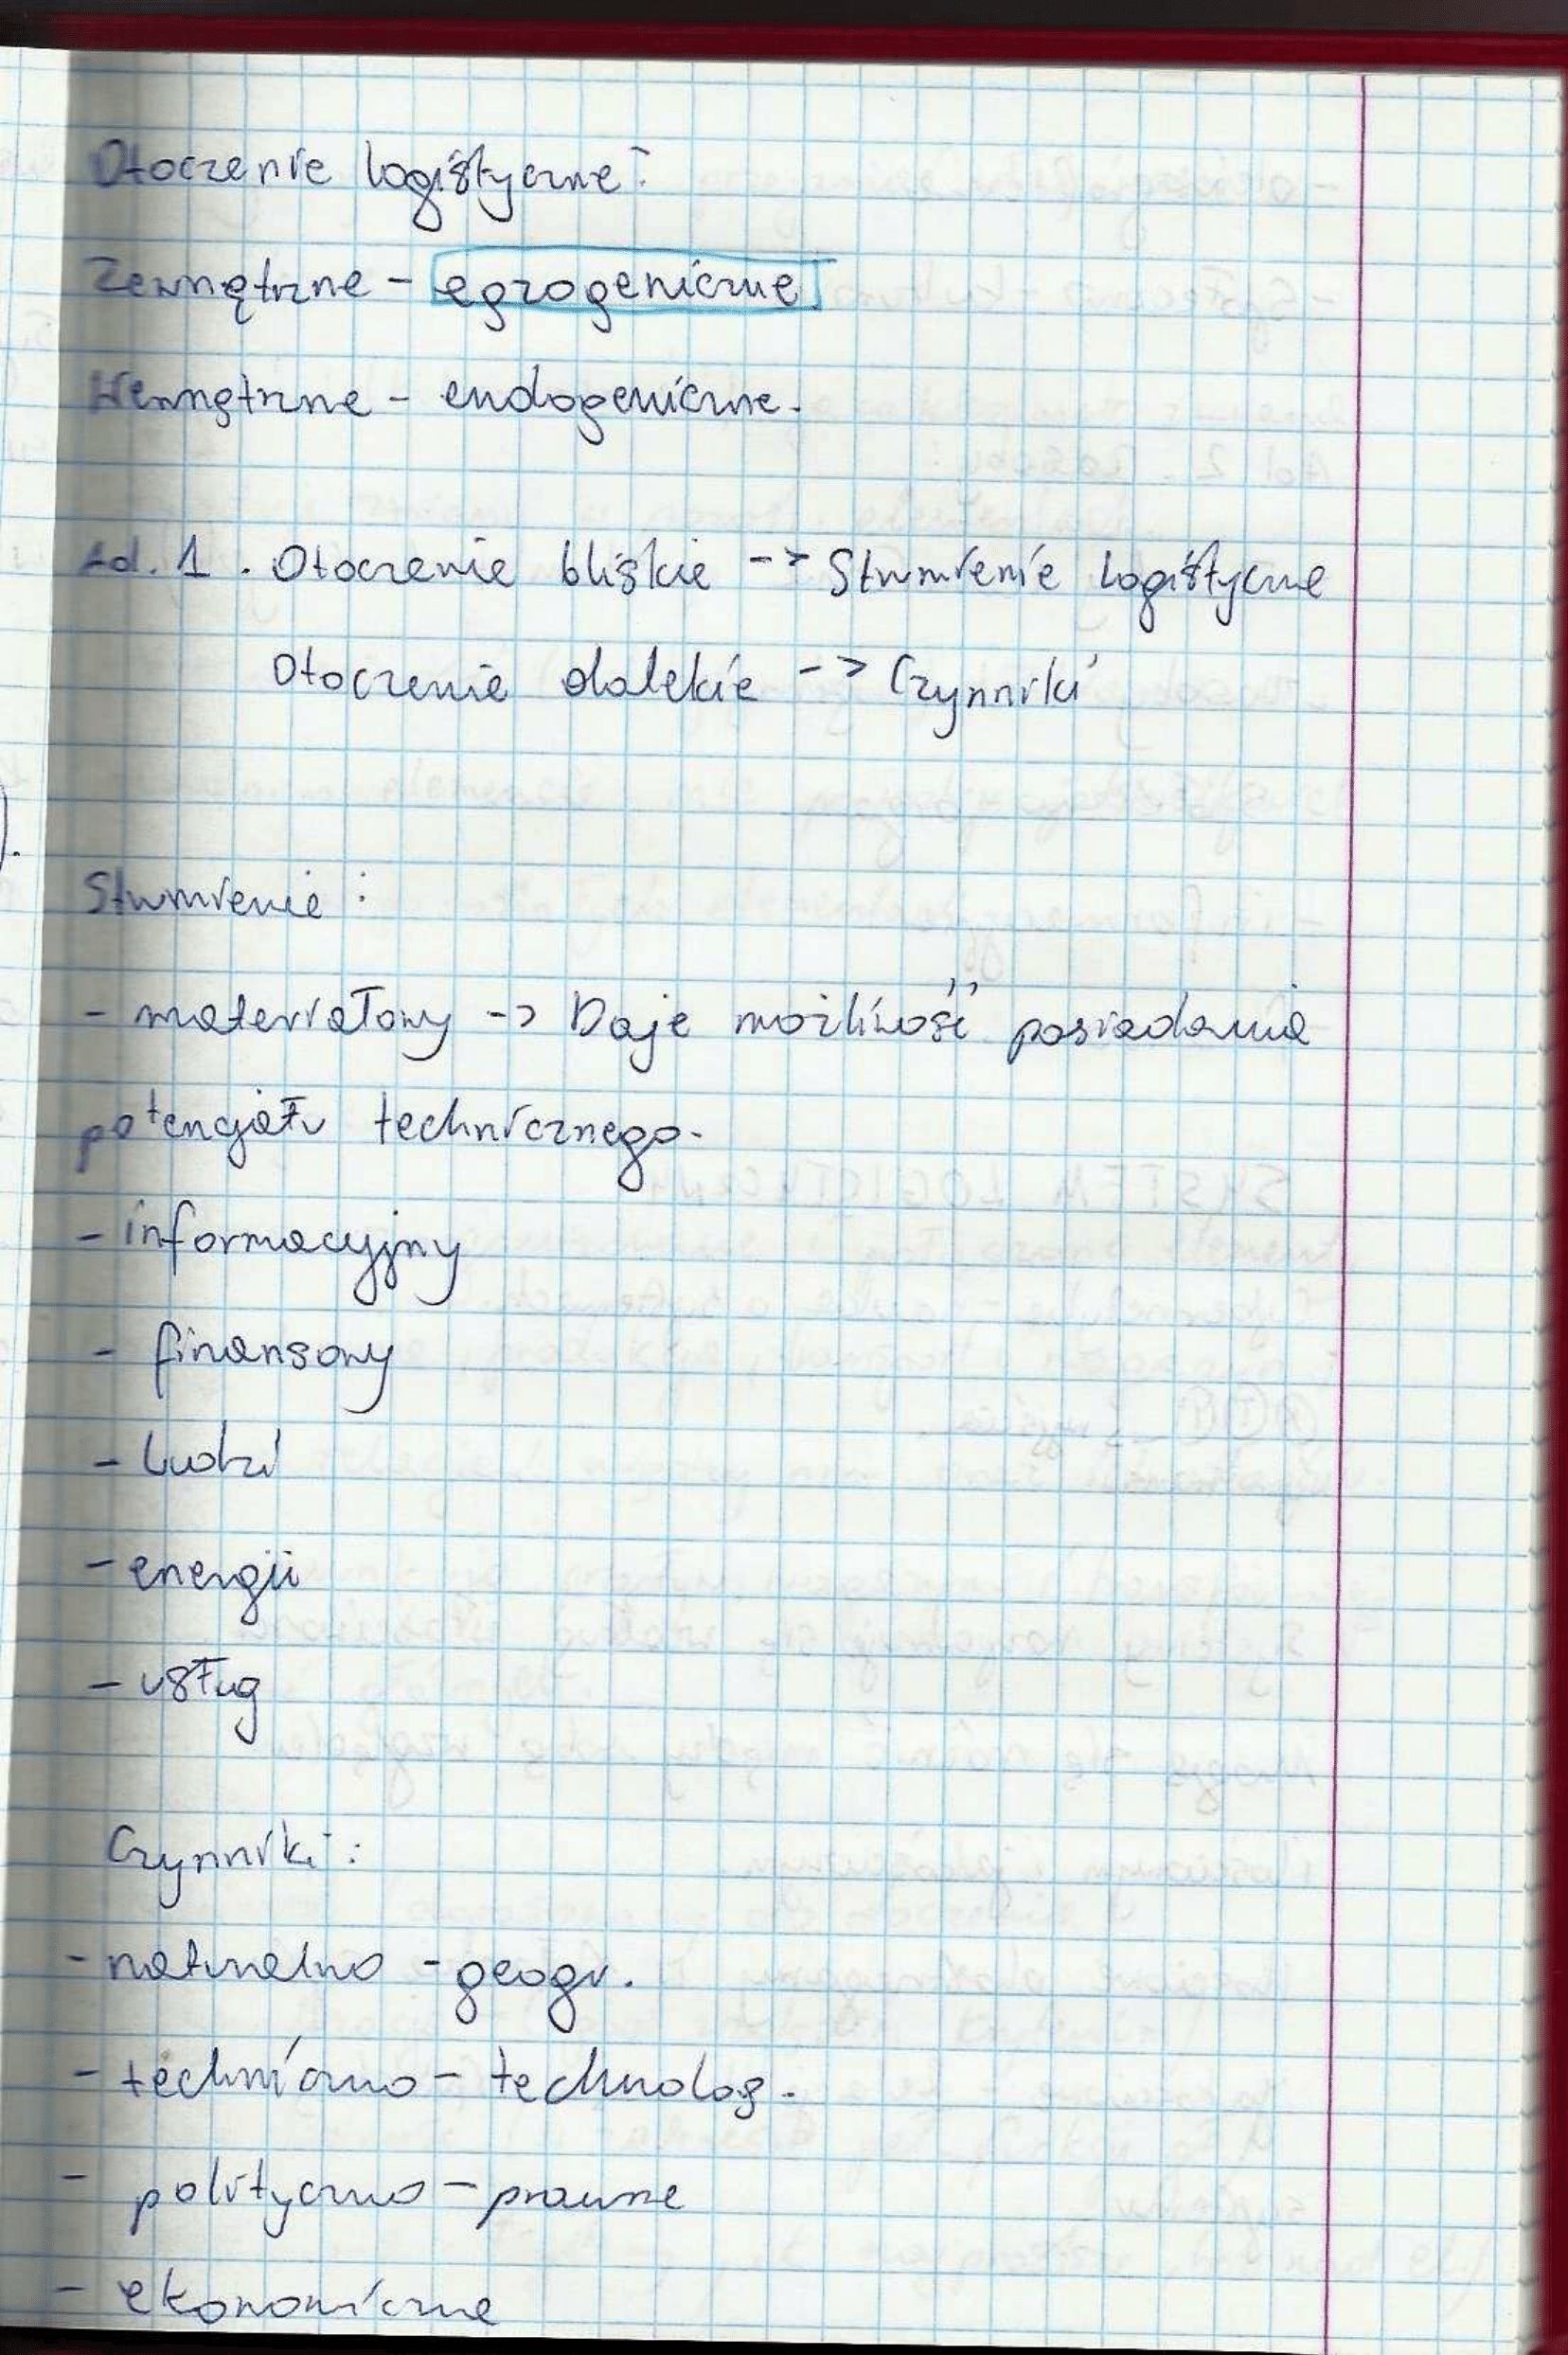 Otoczenie logistyczne:
Zewnętrzne - egzogeniczne
Wewnętrzne - endogeniczne.
Ad. 1. Otoczenie bliskie -> Strumienie logistyczne
Otoczenie dalekie -> Czynniki
Strumienie:
- materiałowy -> Daje możliwość posiadania
potencjału technicznego.
- informacyjny
- finansowy
- ludzi
- energii
- usług
Czynniki:
- naturalno - geogr.
- techniczno - technolog.
- polityczno - prawne
- ekonomiczne